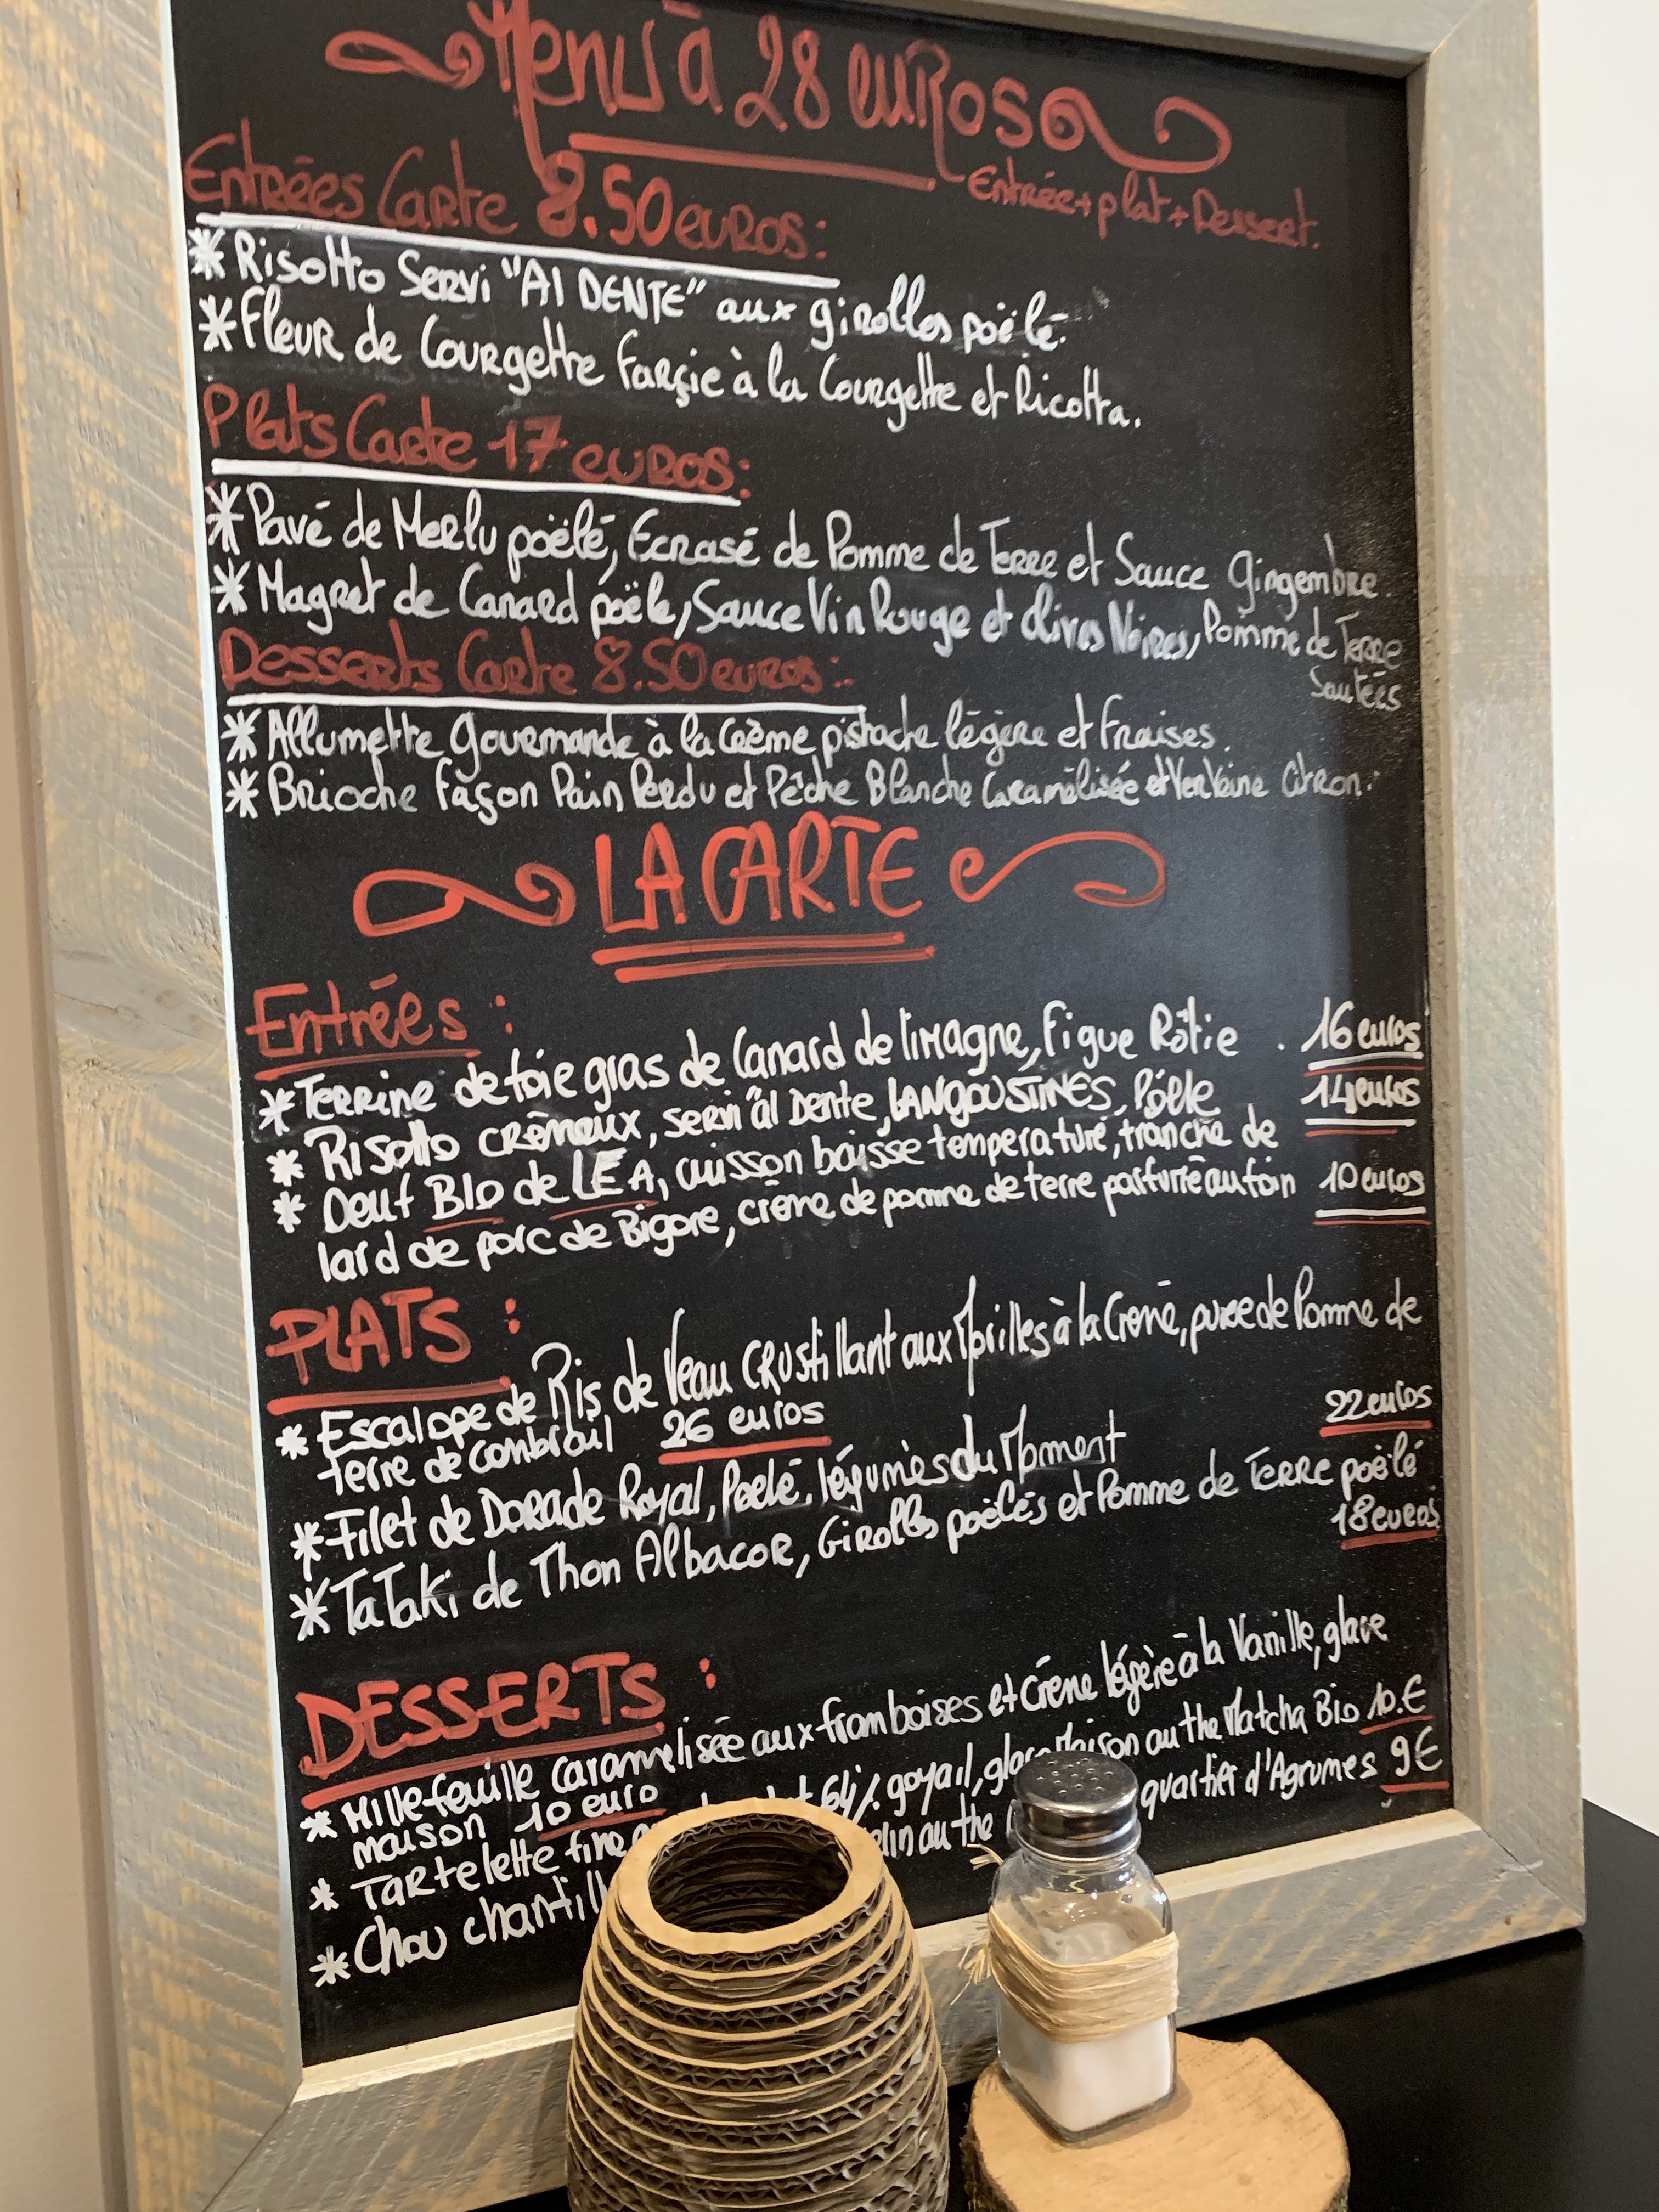 Menu à 28 euros
Entrée + plat + Dessert.
Entrées Carte 8.50 euros :
* Risotto Servi "Al DENTE" aux girolles poëlé.
* Fleur de Courgette Farçie à la Courgette et Ricotta.
Plats Carte 17 euros :
* Pavé de Merlu poëlé, Ecrasé de Pomme de Terre et Sauce Gingembre.
* Magret de Canard poële, Sauce Vin Rouge et Olives Noires, Pomme de Terre
Sautées
Desserts Carte 8.50 euros :
* Allumette Gourmande à la Crème pistache légère et Fraises.
* Brioche Façon Pain Perdu et Pêche Blanche Caramélisée et Verveine Citron.
LA CARTE
Entrées :
* Terrine de foie gras de Canard de limagne, Figue Rôtie . 16 euros
* Risotto crèmeux, servi "al Dente, LANGOUSTINES, Pôële 14 euros
* Oeuf BIO de LEA, cuisson baisse temperature, tranche de
lard de porc de Bigore, crème de pomme de terre parfurié au foin 10 euros
PLATS :
* Escalope de Ris de Veau CRustillant aux Morilles à la Crème, puree de Pomme de
terre de combrail 26 euros
* Filet de Dorade Royal, Poelé, légumes du Moment 22 euros
* TaTaki de Thon Albacor, Girolles poëlés et Pomme de Terre poëlé
18 euros
DESSERTS :
* Mille feuille caramelisée aux framboises et Crème légère à la Vanille, glace
maison 10 euro
* Tartelette fine 64%. goyail, glace Maison au the Matcha Bio 10.€
* Chou chantill au the quartier d'Agrumes 9€